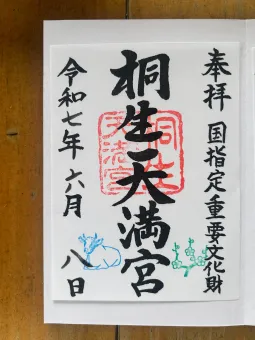 奉拝 国指定重要文化財
桐生天満宮
令和七年 六月 八日